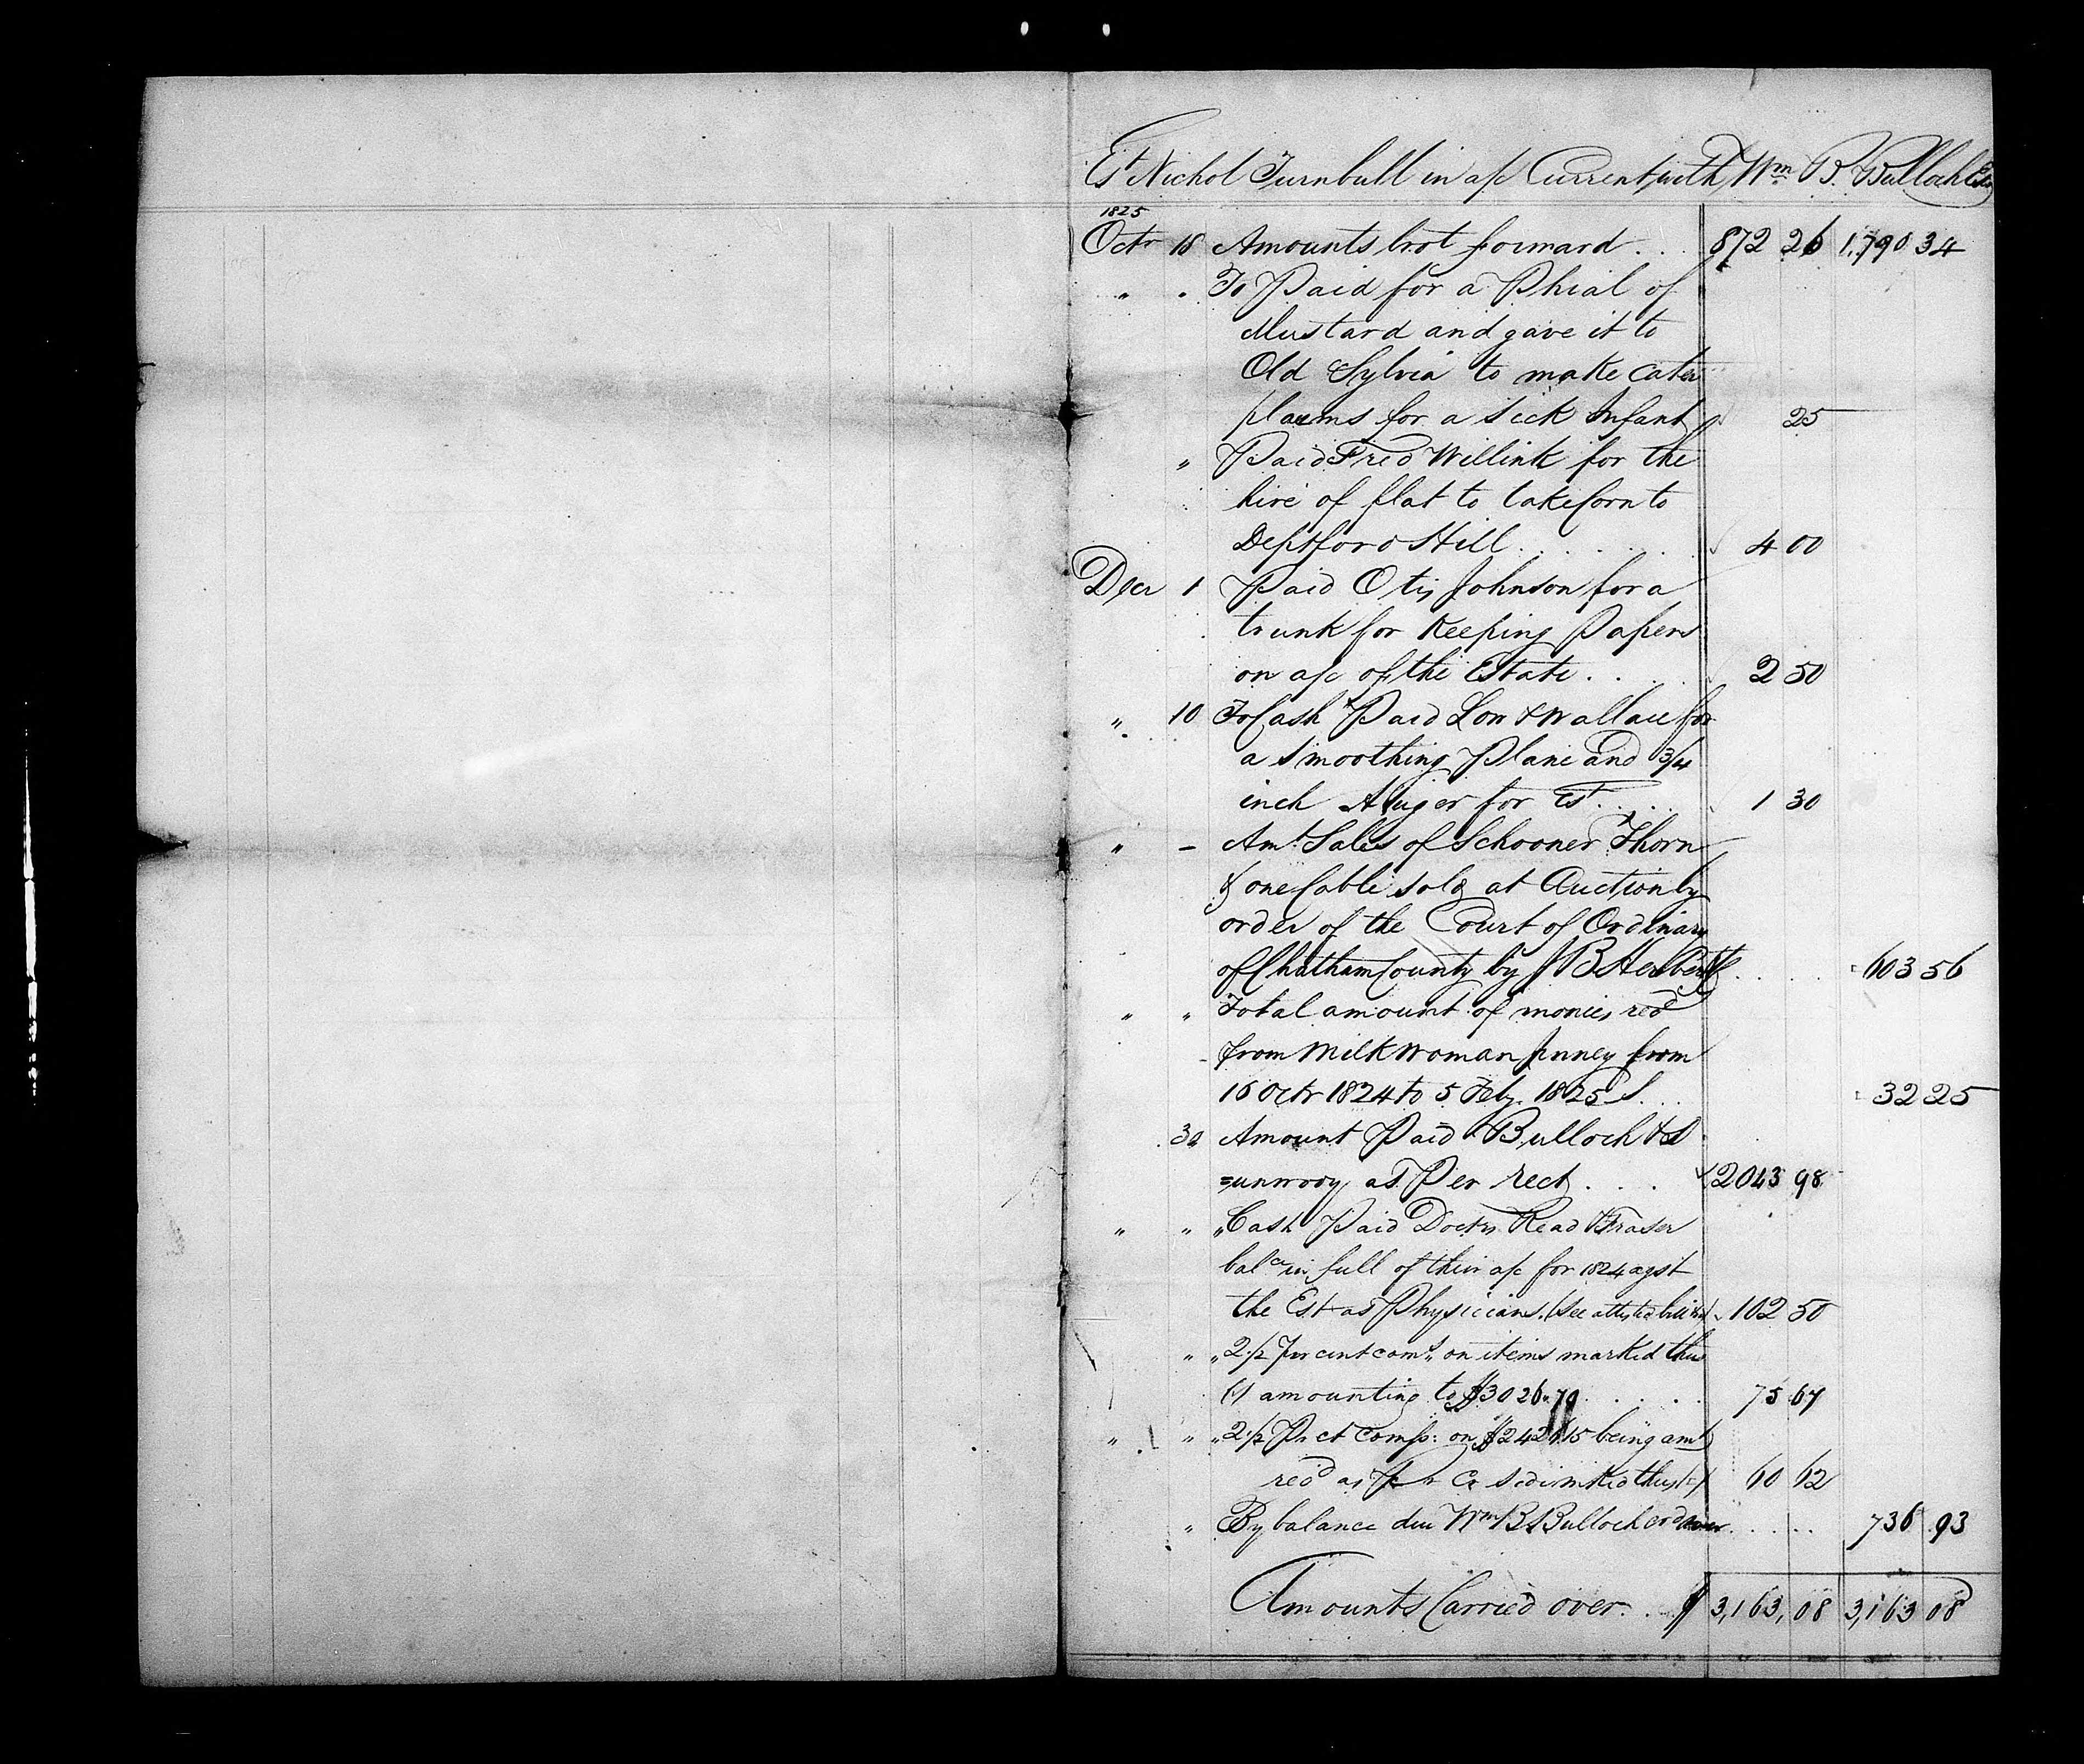 Est Nichol Turnbull in a/c Current with Wm B. Bulloch Esq
1825
Octr 18 Amounts brot forward . . 872 26 1,790 34
" " To Paid for a Phial of
Mustard and gave it to
Old Sylvia to make cata
plasms for a sick Infant 25
" Paid Fred Willink for the
hire of flat to take Corn to
Deptford Hill . . . . . 4 00
Decr 1 Paid Otis Johnson for a
trunk for Keeping Papers
on a/c of the Estate . . . . 2 50
" 10 To Cash Paid Low & Wallace for
a Smoothing Plane and 3/4
inch Auger for Est . . . . 1 30
" - Amt Sales of Schooner Thorn
& one Cable sold at Auction by
order of the Court of Ordinary
of Chatham County by J B Herbert . . . . = 603 56
" " Total amount of monies recd
from Milk Woman Jnney from
16 Octr 1824 to 5 Feby. 1825 . . . = 32 25
30 Amount Paid Bulloch & D
=unwody as Per rect . . . 2043 98
" " " Cash Paid Doctrs Read & Fraser
balce in full of their a/c for 1824 agst
the Est as Physicians. (See attested bill 102 50
" " 2 1/2 Per cent coms on items marked thus
(√) amounting to $3026.70 . . . . . 75 67
" " " 2 1/2 Pr ct Comss: on $2426.15 being amt
recd as Per Cr Sd imked thus (=) 60 62
" By balance due Wm B Bulloch cod over . . . . . 736 93
Amounts Carried over . . $ 3,163,08 3,163 08